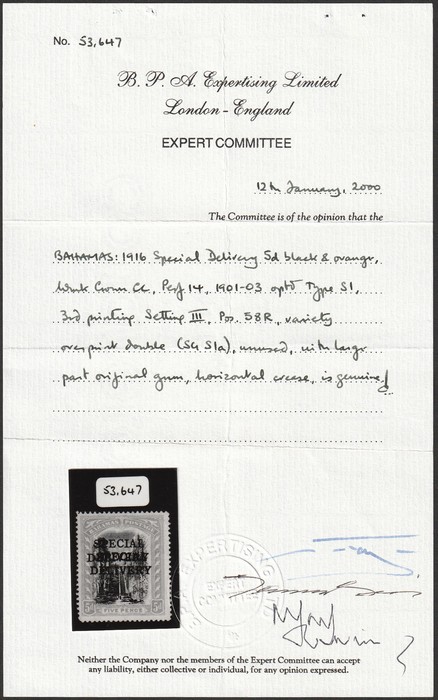 No. 53,647
B. P. A. Expertising Limited
London - England
EXPERT COMMITTEE
12th January, 2000
The Committee is of the opinion that the
BAHAMAS: 1916 Special Delivery 5d black & orange,
Wmk Crown CC, Perf 14, 1901-03 optd Type S1,
3rd printing Setting III, Pos. 58R, variety
overprint double (SG S1a), unused, with large
part original gum, horizontal crease, is genuine.
53,647
SPECIAL
DELIVERY
DELIVERY
FIVE PENCE
EXPERTISING
EXPERT
COMMITTEE
Neither the Company nor the members of the Expert Committee can accept
any liability, either collective or individual, for any opinion expressed.